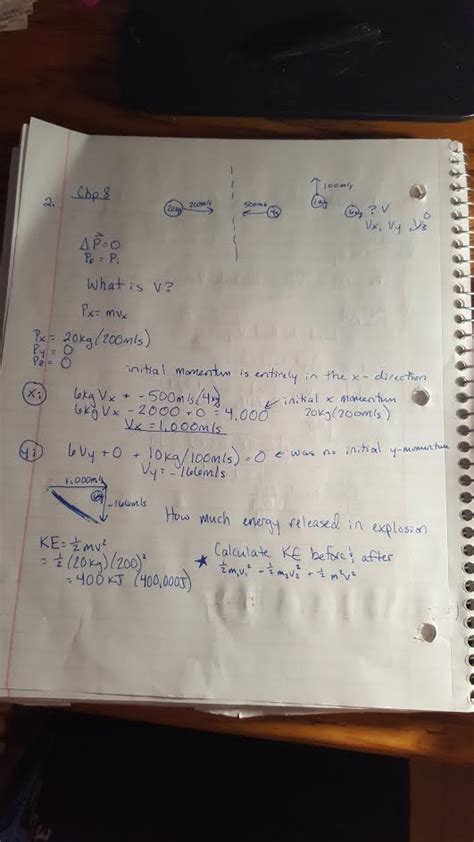 2. Chp 8
20kg 200m/s 500m/s 4kg 100m/s 6kg ? V
Vx, Vy, Vz 0
ΔP=0
Pf = Pi
What is V?
Px = mvx
Px = 20kg (200m/s)
Py = 0
Pz = 0
initial momentum is entirely in the x-direction
x: 6kg Vx + -500m/s (4kg)
6kg Vx - 2000 + 0 = 4,000 ← initial x momentum 20kg (200m/s)
Vx = 1,000m/s
y: 6Vy + 0 + 10kg (100m/s) = 0 ← was no initial y-momentum
Vy = -166m/s
1,000m/s
6kg -166m/s
How much energy released in explosion
KE = ½mv²
= ½ (20kg)(200)²
= 400 KJ (400,000J)
* Calculate KE before & after
½m₁v₁² + ½m₂v₂² + ½m²v²